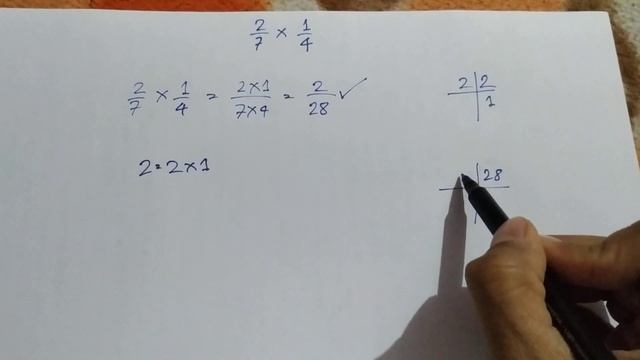 2/7 × 1/4
2/7 × 1/4 = 2×1/7×4 = 2/28 ✓
2 2
1
2 = 2×1
28